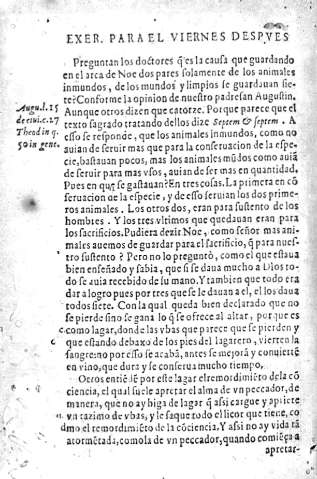 EXER. PARA EL VIERNES DESPVES
Preguntan los doctores q̃ es la causa que guardando
en el arca de Noe dos pares solamente de los animales
inmundos, de los mundos y limpios se guardauan sie-
te? Conforme la opinion de nuestro padre san Augustin,
Aunque otros dizen que catorze. Por que parece que el
texto sagrado tratando dellos dize Septem & septem. A
esso se responde, que los animales inmundos, como no
auian de seruir mas que para la conseruacion de la espe-
cie, bastauan pocos, mas los animales mũdos como auiã
de seruir para mas vsos, auian de ser mas en quantidad.
Pues en que se gastauan? En tres cosas. La primera en cõ
seruacion de la especie, y de esso seruian los dos prime-
ros animales. Los otros dos, eran para sustento de los
hombres. Y los tres vltimos que quedauan eran para
los sacrificios. Pudiera dezir Noe, como señor mas ani-
males auemos de guardar para el sacrificio, q̃ para nues-
tro sustento? Pero no lo preguntò, como el que estaua
bien enseñado y sabia, que si se daua mucho a Dios to-
do se auia recebido de su mano. Y tambien que todo era
dar a logro pues por tres que se le dauan a el, el los daua
todos siete. Con la qual queda bien declarado que no
se pierde sino se gana lo q̃ se ofrece al altar, por que es
como lagar, donde las vbas que parece que se pierden y
que estando debaxo de los pies del lagarero, vierten la
sangre: no por esso se acabã, antes se mejorã y conuiertẽ
en vino, que dura y se conserua mucho tiempo.
Otros entiẽdẽ por este lagar el remordimiẽto de la cõ
ciencia, el qual suele apretar el alma de vn peccador, de
manera, que no ay higa de lagar q̃ assi cargue y apriete
vn razimo de vbas, y le saque todo el licor que tiene, co
mo el remordimiẽto de la cõciencia. Y assi no ay vida tã
atormẽtada, como la de vn peccador, quando comiẽça a
apretar-
Augu. l. 15
de ciui. c. 27
Theod in q.
50 in gene.